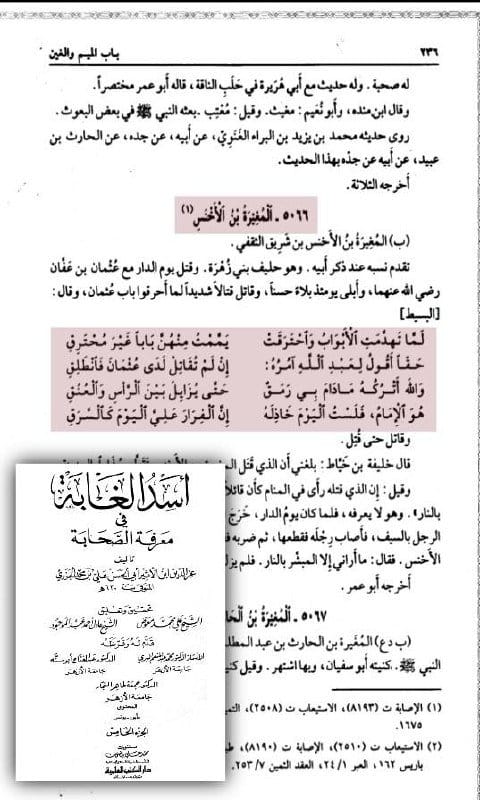 ٢٣٦
باب الميم والغين
له صحبة. وله حديث مع أبي هُرَيرة في حَلَبِ الناقة، قاله أبو عمر مختصراً.
وقال ابن منده، وأبو نُعَيم: مغيث. وقيل: مُعْتِب. بعثه النبي ﷺ في بعض البعوث.
روى حديثه محمد بن يزيد بن البراء الغَنَوِيّ، عن أبيه، عن جده، عن الحارث بن
عبيد، عن أبيه عن جدّه بهذا الحديث.
أخرجه الثلاثة.
٥٠٦٦ ـ اَلْمُغِيرَةُ بْنُ الْأَخْنَسِ (١)
(ب) المُغِيرَةُ بنُ الأَخْنس بن شَرِيق الثقفي.
تقدم نسبه عند ذكر أبيه. وهو حليف بني زُهْرَة. وقتل يوم الدار مع عُثْمان بن عَفَّان
رضي الله عنهما، وأبلى يومئذ بلاءً حسناً، وقاتل قتالاً شديداً لما أحرقوا باب عثمان، وقال:
[البسيط]
لَمَّا تَهَدَّمَتِ الْأَبْوَابُ وَاحْتَرَقَتْ يَمَّمْتُ مِنْهُنَّ بَاباً غَيْرَ مُحْتَرِقِ
حَقّاً أَقُولُ لِعَبْدِ اللَّهِ آمُرُهُ: إِنْ لَمْ تُقَاتِلْ لَدَى عُثْمَانَ فَانْطَلِقِ
وَاللَّهِ أَتْرُكُهُ مَادَامَ بِي رَمَقٌ حَتَّى يُزَايِلَ بَيْنَ الرَّأْسِ وَالْعُنُقِ
هُوَ الْإِمَامُ، فَلَسْتُ الْيَوْمَ خَاذِلَهُ إِنَّ الْفِرَارَ عَلَيَّ الْيَوْمَ كَالسَّرَقِ
وقاتل حتى قُتِل.
قال خليفة بن خَيَّاط: بلغني أن الذي قَتَل
وقيل: إن الذي قتله رأى في المنام كأن قائلاً
بالنار». وهو لا يعرفه، فلما كان يومُ الدار، خَرَجَ
الرجل بالسيف، فأصاب رِجلَه فقطعها، ثم ضربه
الأخنس. فقال: ما أراني إلا المبشَّر بالنار. فلم يزل
أخرجه أبو عمر.
٥٠٦٧ ـ الْمُغِيرَةُ بْنُ
(ب دع) المُغِيرة بن الحارث بن عبد المطلب
النبي ﷺ. كنيته أبو سفيان، وبها اشتهر. وقيل
(١) الإصابة ت (٨١٩٣)، الاستيعاب ت (٢٥٠٨)،
١٦٧٥.
(٢) الاستيعاب ت (٢٥١٠)، الإصابة ت (٨١٩٠)،
باريس ١٦٢، العبر ٢٤/١، العقد الثمين ٢٥٣/٧.
أسد الغابة
في
معرفة الصحابة
تأليف
عز الدين ابن الأثير أبي الحسن علي بن محمد الجزري
المتوفى سنة ٦٣٠ هـ
تحقيق وتعليق
الشيخ علي محمد معوض الشيخ عادل أحمد عبد الموجود
قدم له وقرظه
الأستاذ الدكتور محمد عبد المنعم البري الدكتور عبد الفتاح أبو سنة
جامعة الأزهر جامعة الأزهر
الدكتور جمعة طاهر النجار
جامعة الأزهر
المحتوى
الجزء الخامس
منشورات
محمد علي بيضون
دار الكتب العلمية